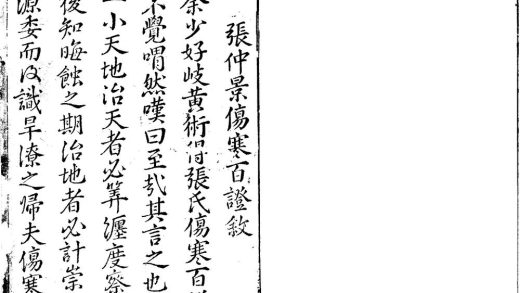 張仲景傷寒百證敘
余少好岐黃術得張氏傷寒百
不覺喟然嘆曰至哉其言之也
一小天地治天者必筭躔度察
後知晦蝕之期治地者必計崇
源委而後識旱潦之歸夫傷寒